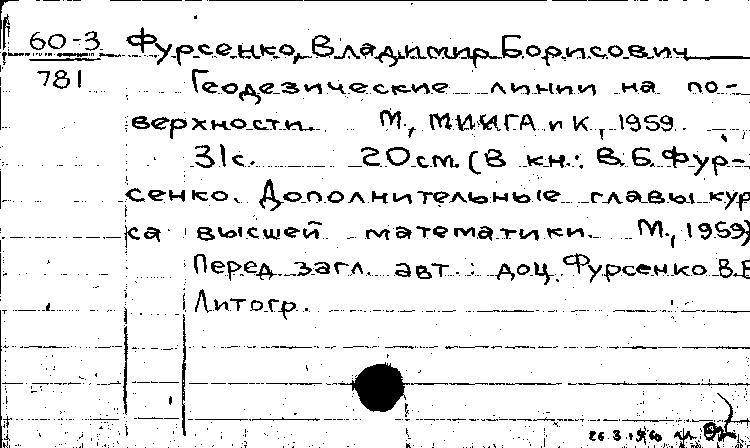 60-3 Фурсенко, Владимир Борисович
781 Геодезические линии на по-
верхности. М., МИИГА и К, 1959.
31с. 20см. (В кн.: В.Б.Фур-
сенко. Дополнительные главы кур
са высшей математики. М., 1959)
Перед загл. авт.: доц. Фурсенко В.Б
Литогр.